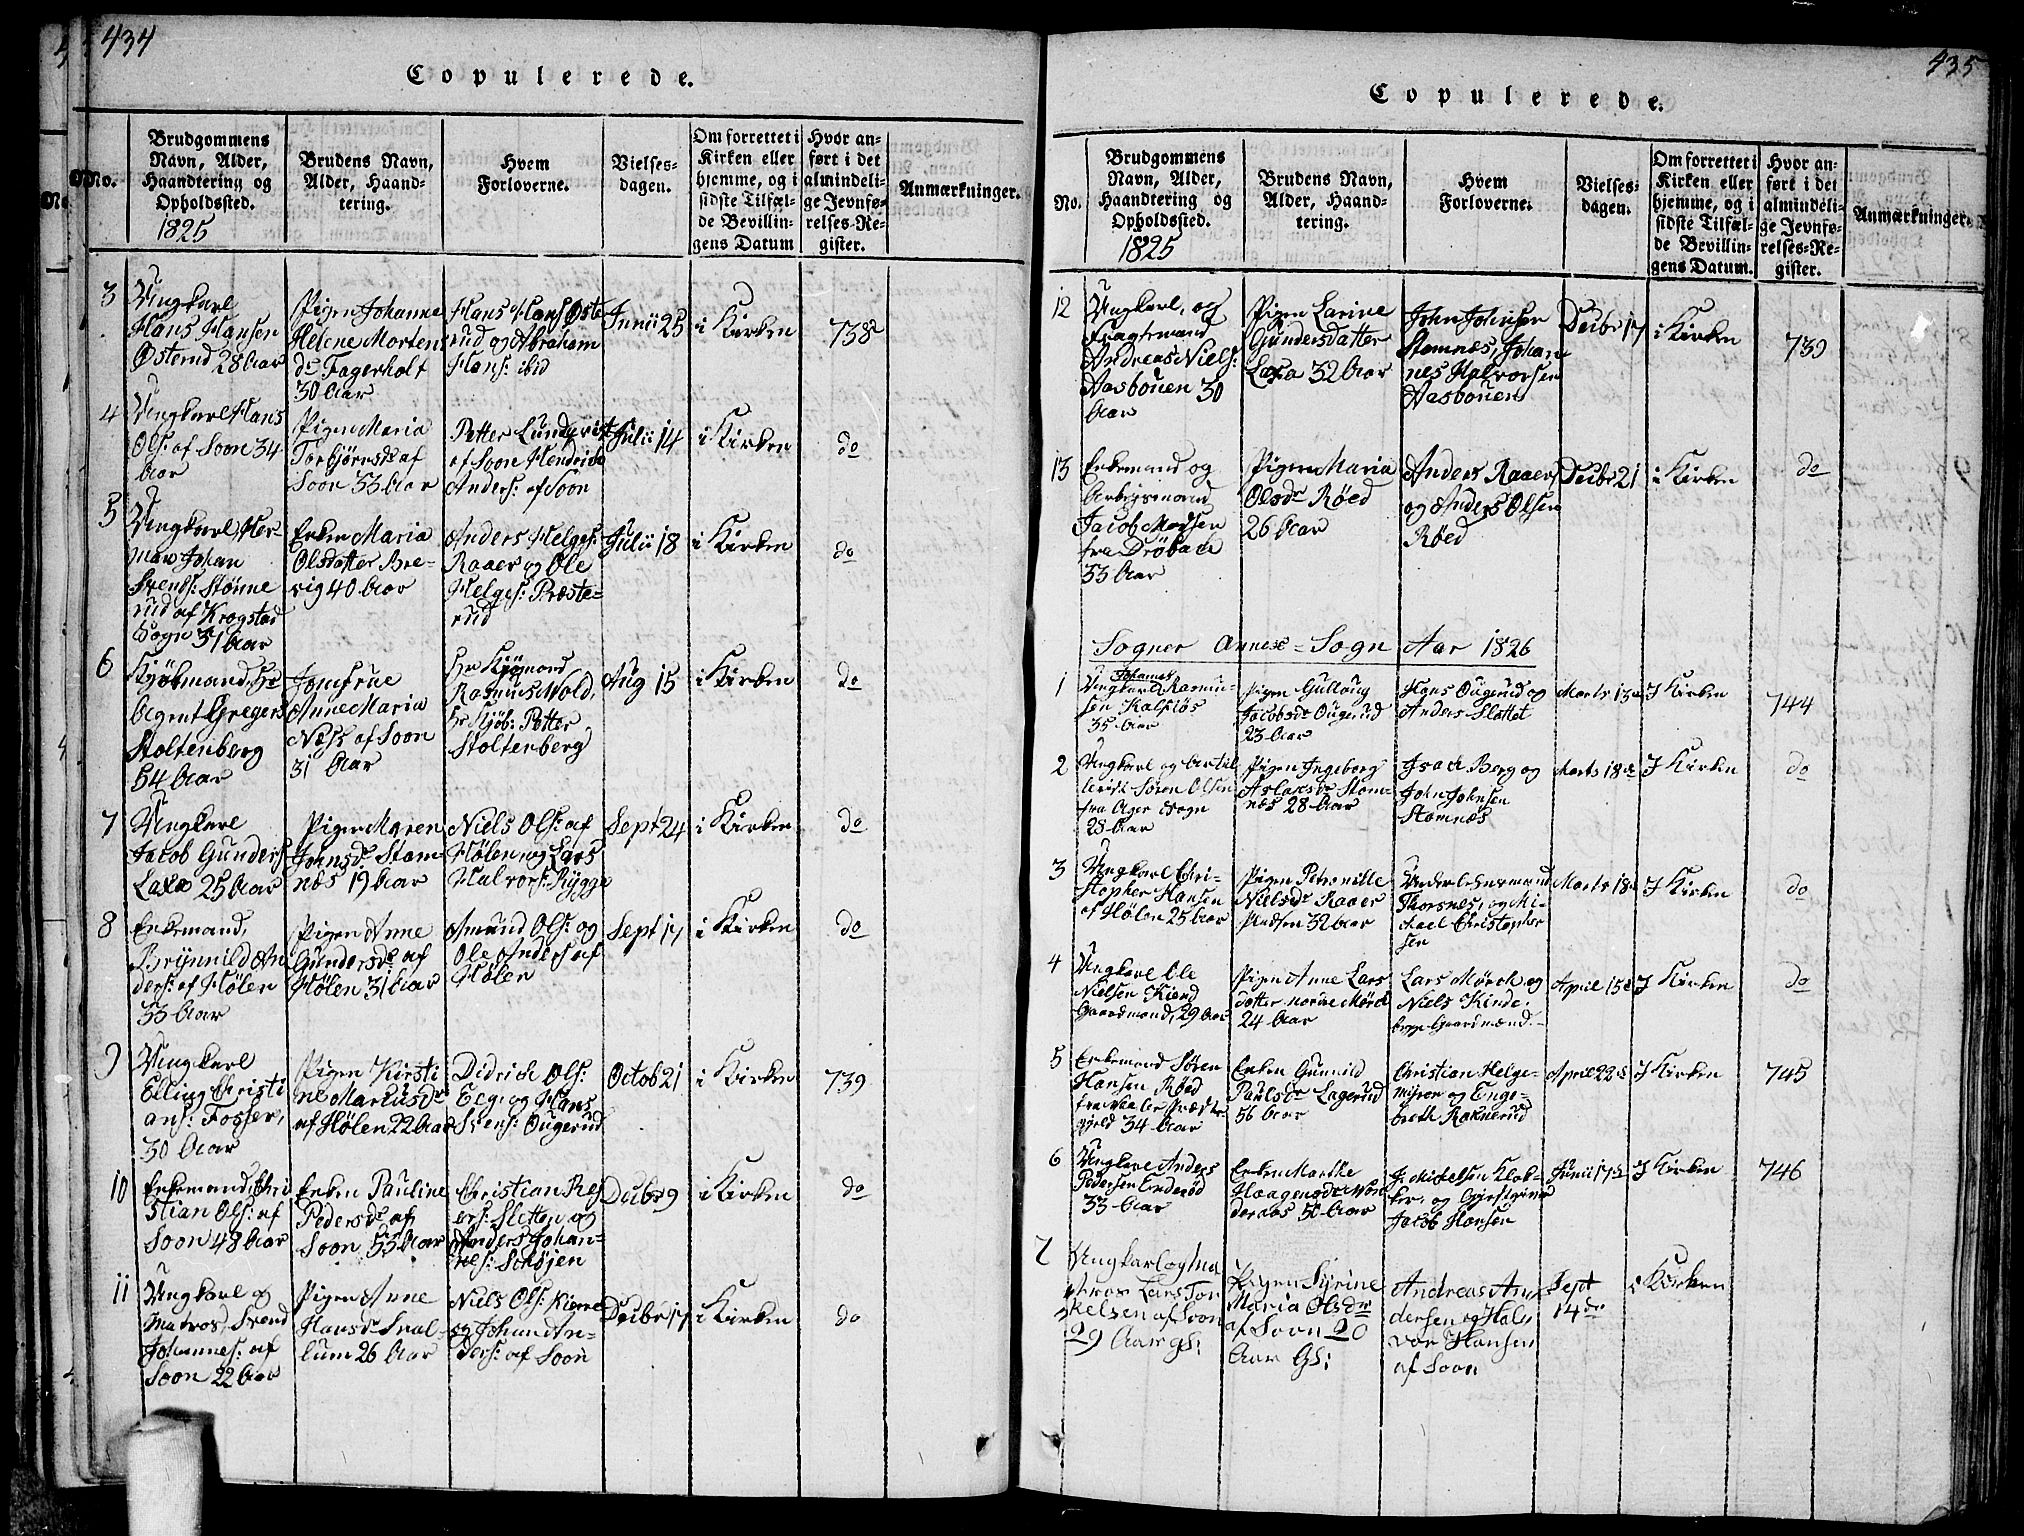 434
Copulerede.
No.
Brudgommens
Navn, Alder,
Haandtering og
Opholdssted.
1825
Brudens Navn,
Alder, Haand-
tering.
Hvem
Forloverne.
Vielses-
dagen.
Om forrettet i
Kirken eller
hjemme, og i
sidste Tilfæl-
de Bevillin-
gens Datum
Hvor an-
ført i det
almindeli-
ge Jevnfø-
relses-Re-
gister.
Anmærkninger.
3
Ungkarl
Hans Hansen
Østerud 28 Aar
Pigen Johanne
Helene Mortens
dr Fagerholt
30 Aar
Hans Hans Øste
rud og Abraham
Hans: ibid
Junii 25
i Kirken
738
4
Ungkarl Hans
Ols: af Soon 34
Aar
Pigen Maria
Torbjørnsdr af
Soon 33 Aar
Petter Lundqvist
af Soon Hendrich
Anders: af Soon
Julii 14
i Kirken
do
5
Ungkarl, Her-
man Johan
Svends: Stønne
rud af Krogstad
Sogn 31 Aar
Enken Maria
Olsdatter Bre-
vig 40 Aar
Anders Helges:
Raaer og Ole
Helges: Præste-
rud
Julii 18
i Kirken
do
6
Kjøbmand, Hr
Agent Gregers
Stoltenberg
54 Aar
Jomfrue
Anne Maria
Næss af Soon
31 Aar
Hr Kjøbmand
Rasmus Wold,
Hr Kjøb: Petter
Stoltenberg
Aug 15
i Kirken
do
7
Ungkarl
Jacob Gunders
Laxa 25 Aar
Pigen Maren
Johnsdr Stam
næs 19 Aar
Niels Ols: af
Hølen og Lars
Halvors: Rygge
Sept 24
i Kirken
do
8
Enkemand,
Brynnild An
ders: af Hølen
33 Aar
Pigen Anne
Gundersdr af
Hølen 31 Aar
Amund Ols: og
Ole Anders af
Hølen
Sept 17
i Kirken
do
9
Ungkarl
Elling Christi
ans: Fosser,
30 Aar
Pigen Kirsti
ne Mariusdr
af Hølen 22 Aar
Didrich Ols:
Elgr og Hans
Svens: Ougerud
Octob 21
i Kirken
739
10
Enkemand, Chri
stian Ols: af
Soon 48 Aar
Enken Pauline
Pedersdr af
Soon 53 Aar
Christian Rej
ers: Sletten og
Anders Johan-
nes: Schøjen
Decbr 9
i Kirken
do
11
Ungkarl og
Matros, Svend
Johannes: af
Soon 22 Aar
Pigen Anne
Hansdr Sval-
lum 26 Aar
Niels Ols: Kjerre
og Johan An-
ders: af Soon
Decbr 17
i Kirken
do
435
Copulerede.
No.
Brudgommens
Navn, Alder,
Haandtering og
Opholdssted.
1825
Brudens Navn,
Alder, Haand-
tering.
Hvem
Forloverne.
Vielses-
dagen.
Om forrettet i
Kirken eller
hjemme, og i
sidste Tilfæl-
de Bevillin-
gens Datum.
Hvor an-
ført i det
almindeli-
ge Jevnfø-
relses-Re-
gister.
Anmærkninger.
12
Ungkarl, og
Fragtemand
Andreas Niels:
Aasbonen 30
Aar
Pigen Larine
Gundersdatter
Laxa 32 Aar
John Johnsen
Stamnæs, Johan
nes Halvorsen
Aasbonen
Decbr 17
i Kirken
739
13
Enkemand og
Arbejdsmand
Jacob Madsen
fra Drøbach
33 Aar
Pigen Maria
Olsdr Røed
26 Aar
Anders Raaer
og Anders Olsen
Røed
Decbr 21
i Kirken
do
Sogner Annex-Sogn Aar 1826
1
Ungkarl Johannes Rasmus-
sen Kalsløs
35 Aar
Pigen Gullaug
Jacobsdr Ougerud
23 Aar
Hans Ougerud og
Anders Slottet
Marts 13de
I Kirken
744
2
Ungkarl og Artil
lerist Søren Olsen
fra Ager Sogn
28 Aar
Pigen Ingeborg
Aslaksdr Stam-
næs 28 Aar
Isach Berg og
John Johnsen
Stamnæs
Marts 18de
I Kirken
do
3
Ungkarl Chri-
stopher Hansen
af Hølen 25 Aar
Pigen Petronille
Nielsdr Raaer
32 Aar
Thorsnæs, og Mi-
chael Christopher
sen
Marts 18
I Kirken
do
4
Ungkarl Ole
Nielsen Kiend
Gaardmand, 29 Aar
Pigen Anne Lars
datter Mørch
24 Aar
Lars Mørch og
Niels Kinde
begge Gaardmænd.
April 15de
I Kirken
do
5
Enkemand Søren
Hansen Røed
fra Vaaler Præste
gjeld 34 Aar
Enken Gunnild
Paulsdr Lagerud
56 Aar
Christian Helge-
og Enge-
breth Raknerud
April 22de
I Kirken
745
6
Ungkarl Anders
Pedersen Enderød
33 Aar
Enken Marthe
Haagensdr
50 Aar
J. Michelsen Klok-
ker, og Gjestgiver
Jacob Hansen
Junii 17de
I Kirken
746
7
Ungkarl og Ma
tros Lars Tor
kelsen af Soon
29 Aar gl:
Pigen Syrine
Maria Olsdr
af Soon 20
Aar Gl:
Andreas An
dersen og Hal
vor Hansen
af Soon
Sept
14de
i Kirken